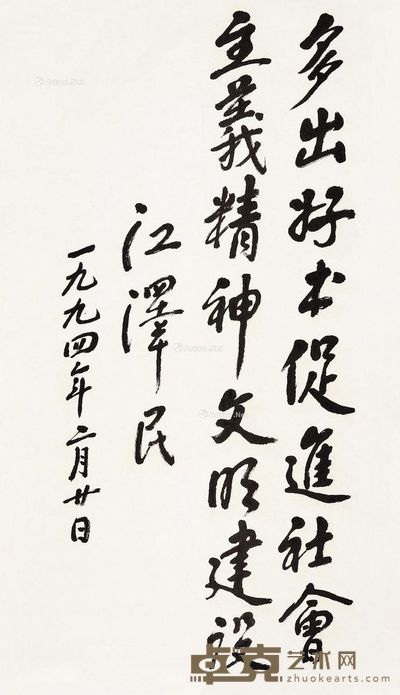 多出好书促進社會
主義精神文明建設
江澤民
一九九四年二月廿日
卓克艺术网
zhuokearts.com